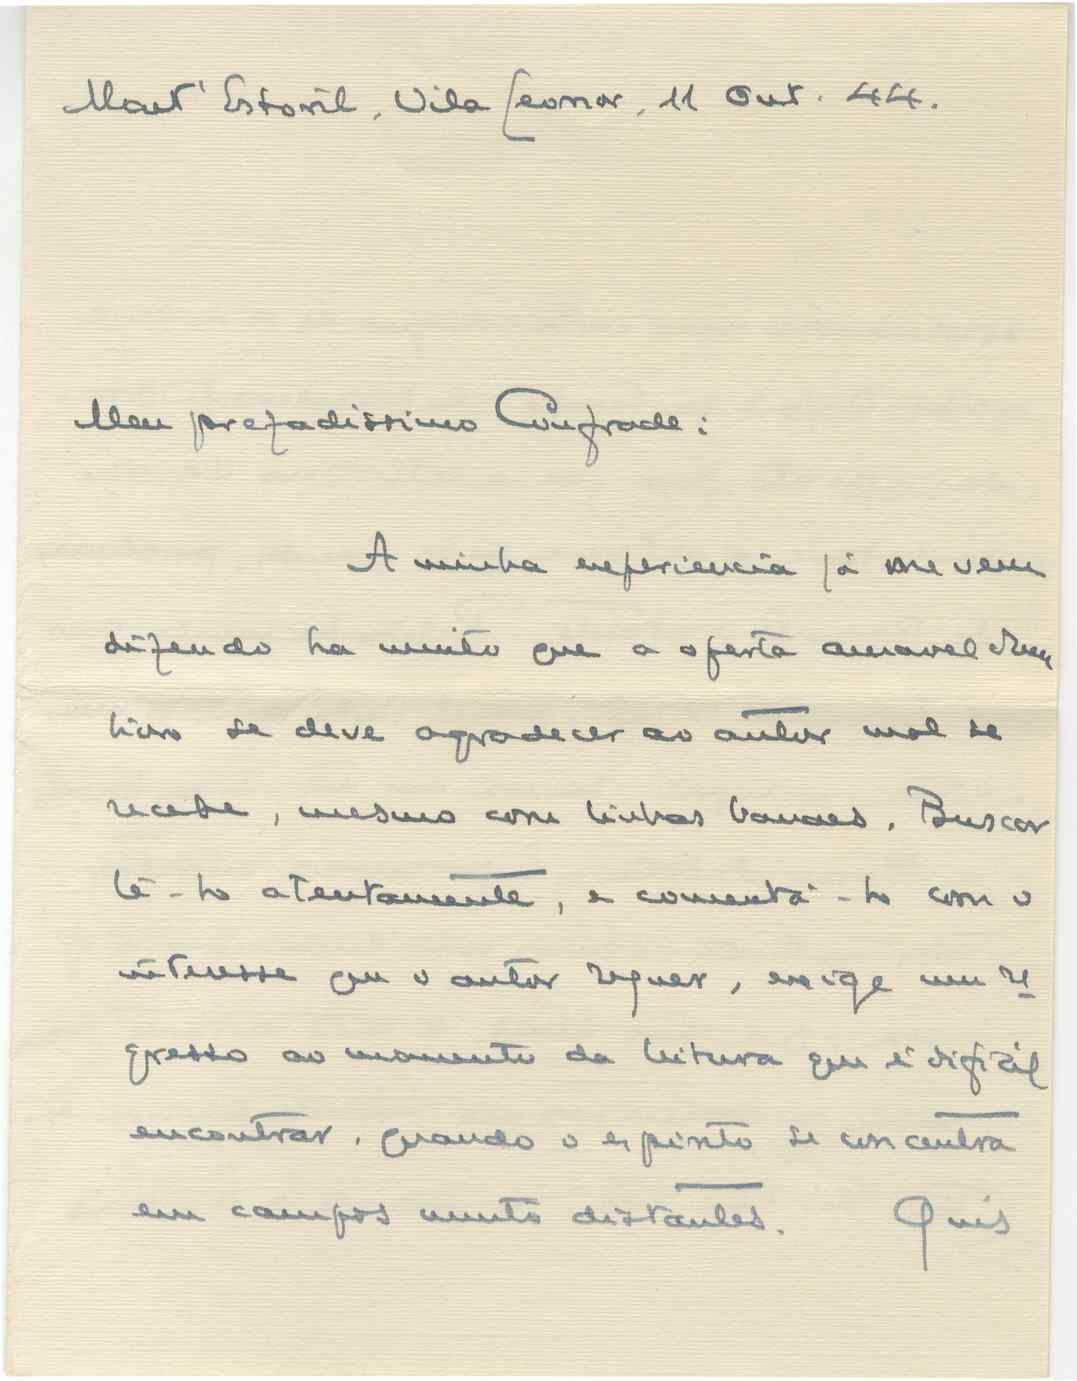 Mont' Estoril, Vila Leonor, 11 Out. 44.
Meu prezadissimo Confrade:
A minha experiencia já me vem
dizendo ha muito que a oferta amavel dum
livro se deve agradecer ao autor mal se
recebe, mesmo com linhas banaes. Buscar
lê-lo atentamente, e comentá-lo com o
interesse que o autor requer, exige um re
gresso ao momento da leitura que é dificil
encontrar, quando o espirito se concentra
em campos muito distantes. Quis